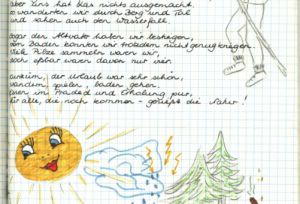 aber uns hat das nichts ausgemacht,
wanderten wir durch Berg und Tal
und sahen auch den Wasserfall.
sogar der haben wir bestiegen,
vom Baden konnten wir trotzdem nicht genug kriegen.
Viele Pilze sammelten waren wir,
doch eßbar waren davon nur vier.
der Urlaub war sehr schön,
wandern, spielen, baden gehen
und Erholung pur,
für alle, die noch kommen - genießt die Natur!